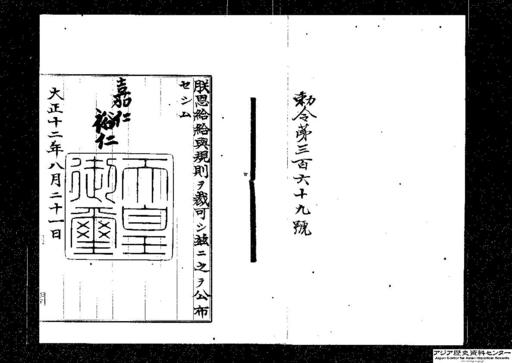 勅令第三百六十九號
朕恩給給與規則ヲ裁可シ茲ニ之ヲ公布
セシム
嘉仁
裕仁
天皇
御璽
大正十二年八月二十一日
アジア歴史資料センター
Japan Center for Asian Historical Records